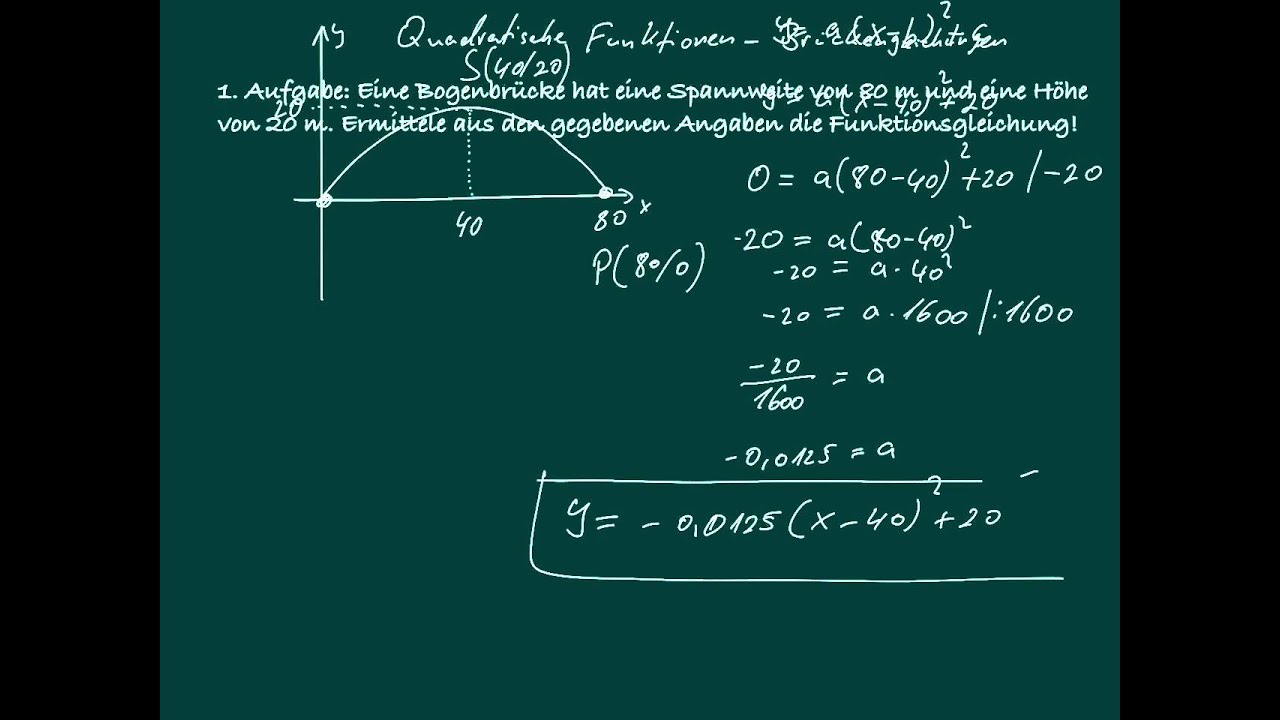 y
Quadratische Funktionen –
S(40/20)
1. Aufgabe: Eine Bogenbrücke hat eine Spannweite von 80 m und eine Höhe
20
von 20 m. Ermittele aus den gegebenen Angaben die Funktionsgleichung!
0 = a(80-40)²+20 /-20
40
80
x
P(80/0)
-20 = a(80-40)²
-20 = a·40²
-20 = a·1600 /:1600
-20/1600 = a
-0,0125 = a
y = -0,0125(x-40)²+20